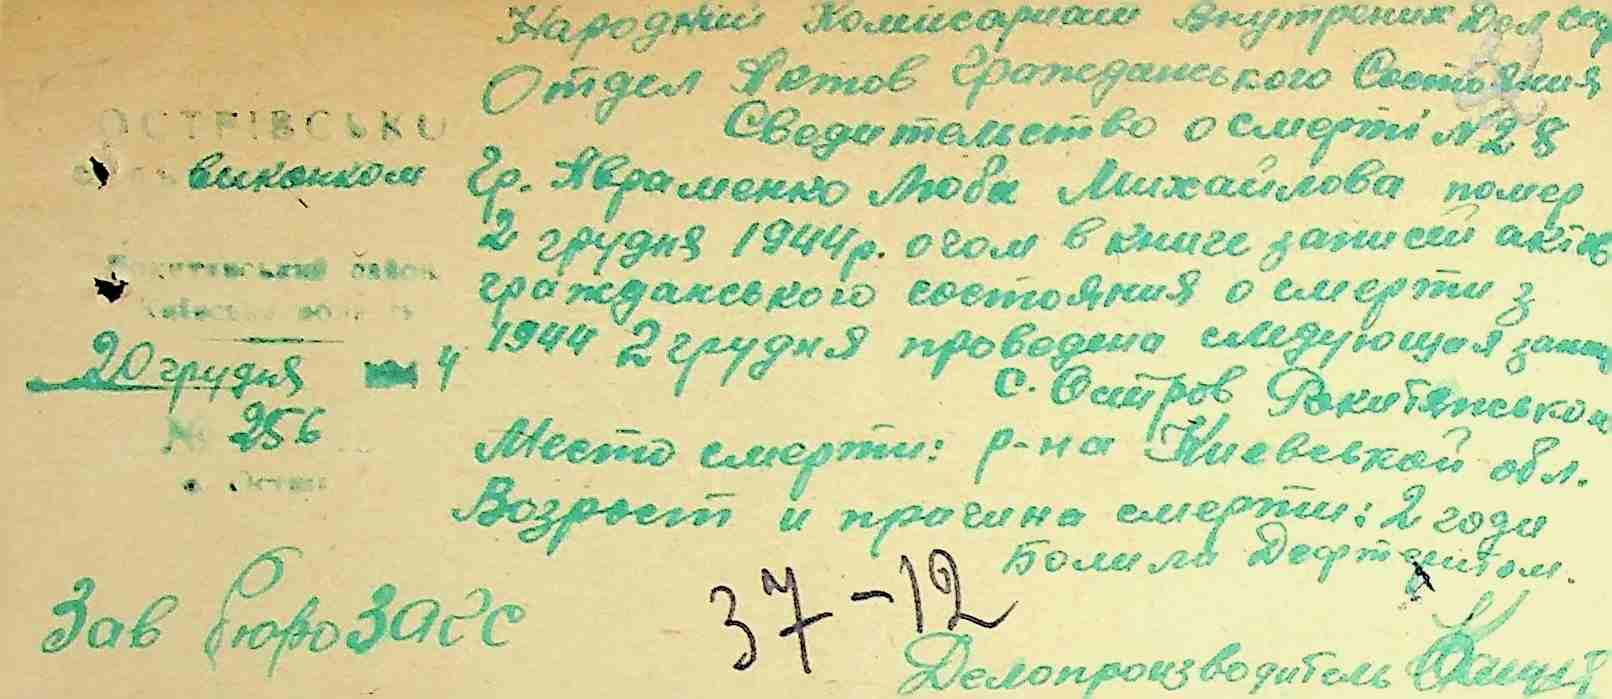 Народній Комісариат Внутрених Дел
Отдел Актов Гражданського Состояния
Сведительство о смерті N 28
Гр. Авраменко Люба Михайлова помер
2 грудня 1944 р. о чом в книге записей актов
гражданського состояния о смерти з
1944 2 грудня проведена следующия
с. Острів Рокитянськом
Место смерти: р-на Киевськой обл.
Возрост и причина смерти: 2 годи
Болила Дефтеритом.
ОСТРІВСЬКО
виконком
Рокитянський район
Київська область
20 грудня 4
№ 256
Зав бюро ЗАГС
37-12
Делопроизводитель